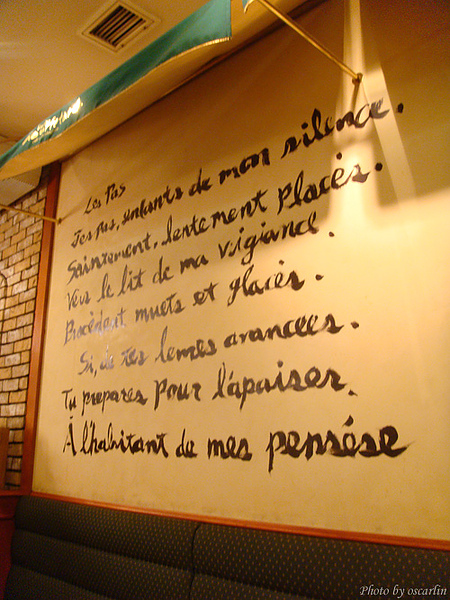 Les Pas
Tes pas, enfants de mon silence.
Saintement, lentement placés.
Vers le lit de ma vigiance.
Procèdent muets et glacés.
Si, de tes lemes avancees.
Tu prepares pour l'apaiser.
À l'habitant de mes pensése
Photo by oscarlin